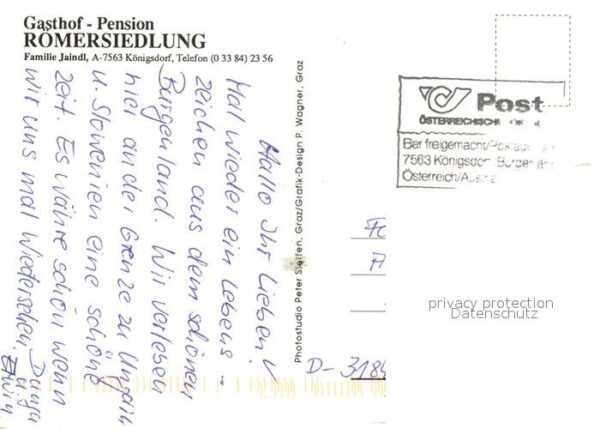 Gasthof - Pension
RÖMERSIEDLUNG
Familie Jaindl, A-7563 Königsdorf, Telefon (0 33 84) 23 56
Hallo Ihr Lieben!
Mal wieder ein Lebens-
zeichen aus dem schönen
Burgenland. Wir verleben
hier an der Grenze zu Ungarn
u. Slowenien eine schöne
Zeit. Es währe schön wenn
wir uns mal Wiedersehen,
Erwin
Photostudio Peter Steffen, Graz/Grafik-Design P. Wagner, Graz
Post
ÖSTERREICHISCHE
Bar freigemacht/Postage
7563 Königsdorf, Burgenland
Österreich/Austria
privacy protection
Datenschutz
D-3184